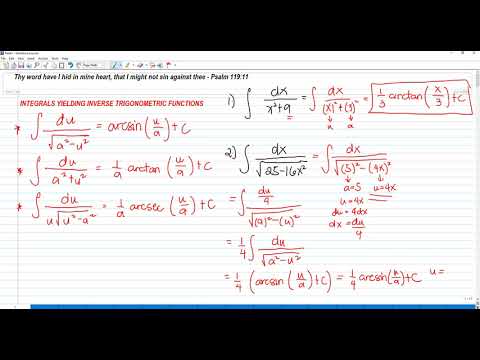 Thy word have I hid in mine heart, that I might not sin against thee - Psalm 119:11
INTEGRALS YIELDING INVERSE TRIGONOMETRIC FUNCTIONS
* ∫ du/√(a²-u²) = arcsin(u/a)+C
* ∫ du/(a²+u²) = 1/a arctan(u/a)+C
* ∫ du/(u√(u²-a²)) = 1/a arcsec(u/a)+C
1) ∫ dx/(x²+9) = ∫ dx/((x)²+(3)²) = 1/3 arctan(x/3)+C
u a
2) ∫ dx/√(25-16x²) = ∫ dx/√((5)²-(4x)²)
a=5 u=4x
u=4x
du=4dx
dx=du/4
= ∫ (du/4)/√((a)²-(u)²)
= 1/4 ∫ du/√(a²-u²)
= 1/4 (arcsin(u/a)+C) = 1/4 arcsin(u/a)+C u=